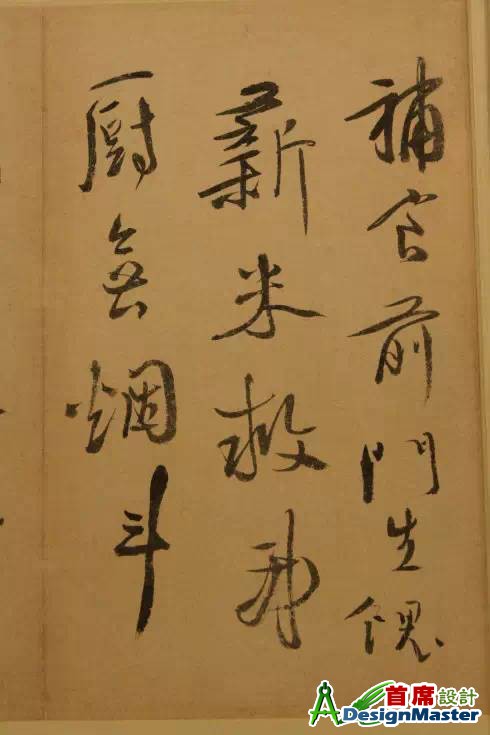 補食前門生餽
薪米救我
廚無烟斗
首席設計
DesignMaster